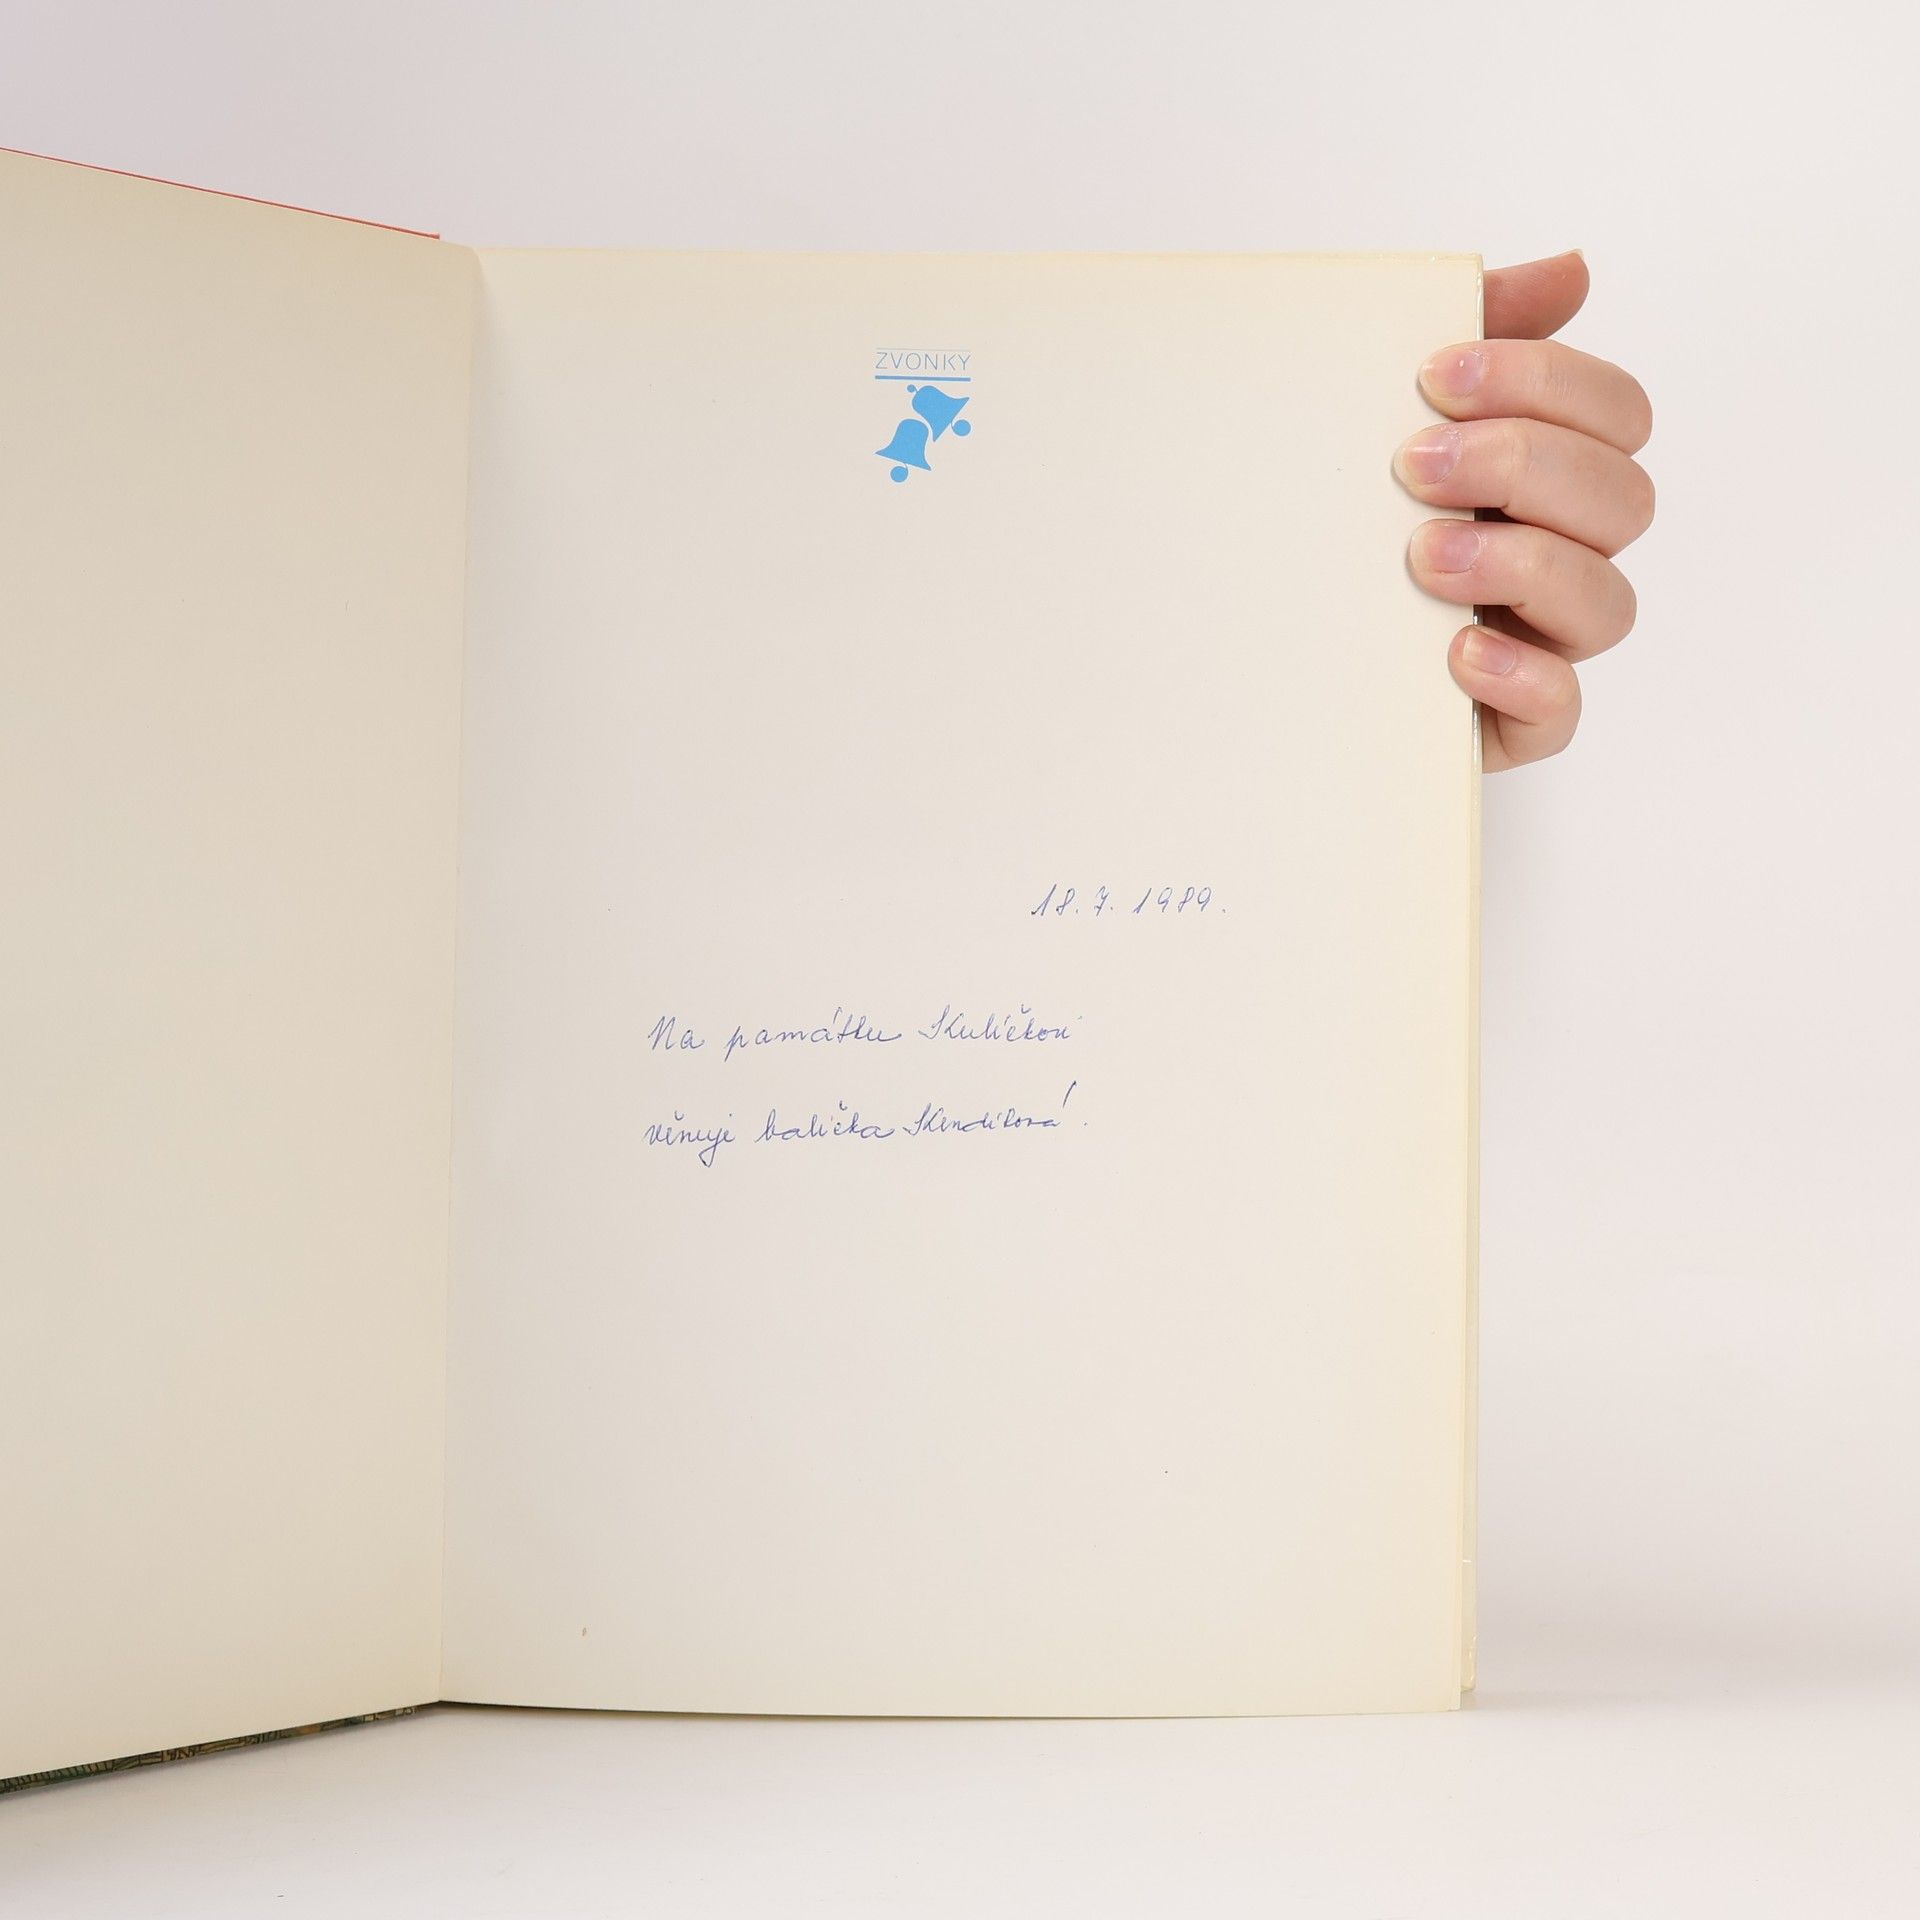 ZVONKY
18. 7. 1989.
Na památku Kuličkovi
věnuje balička Kendíková.